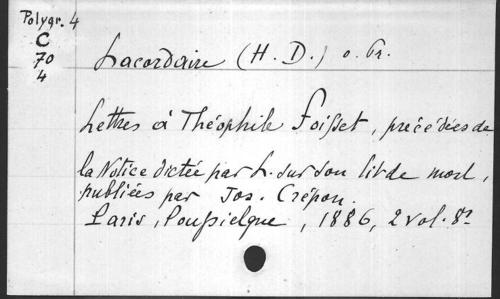 Polygr. 4
C
70
4
Lacordaire (H. D.) o. Pr.
Lettres à Théophile Foisset, précédées de
la Notice dictée par L. sur son lit de mort,
publiées par Jos. Crépon.
Paris, Poussielgue, 1886, 2 vol. 8º